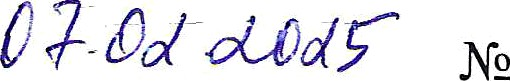 07.02.2025 №